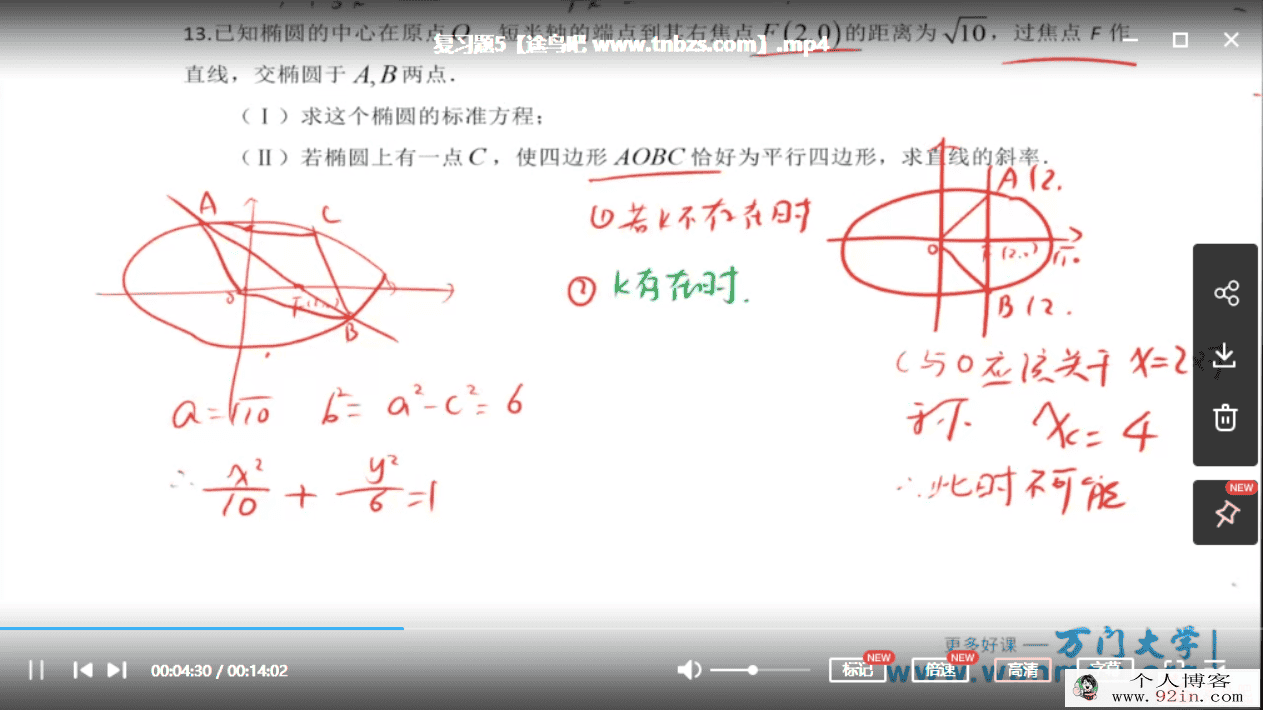 13.已知椭圆的中心在原点O，短半轴的端点到其右焦点F(2,0)的距离为√10，过焦点F作
复习题5【途鸟吧 www.tnbzs.com】.mp4
直线，交椭圆于A,B两点.
（Ⅰ）求这个椭圆的标准方程；
（Ⅱ）若椭圆上有一点C，使四边形AOBC恰好为平行四边形，求直线的斜率.
A
C
O
F
B
①若k不存在时
②k存在时.
A(2.
O
F(2,0)
√10
B(2.
C与O应该关于x=2对
称 x_C=4
∴此时不可能
a=√10 b²=a²-c²=6
∴x²/10+y²/6=1
NEW
更多好课——万门大学|
00:04:30 / 00:14:02
标记 NEW
倍速 NEW
高清
字幕
个人博客
www.92in.com